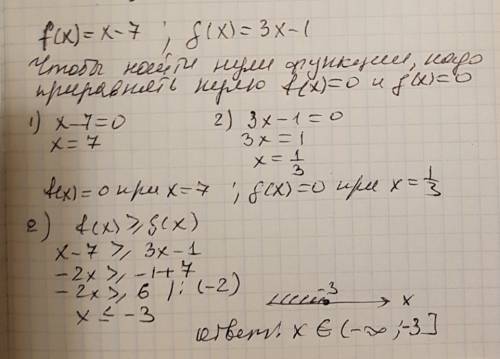 f(x)=x-7 ; g(x)=3x-1
Чтобы найти нули функции, надо
приравнять нулю f(x)=0 и g(x)=0
1) x-7=0 2) 3x-1=0
x=7 3x=1
x=1/3
f(x)=0 при x=7 ; g(x)=0 при x=1/3
2) f(x)⩾g(x)
x-7⩾3x-1
-2x⩾-1+7
-2x⩾6 |:(-2)
x≤-3
-3 x
ответ: x∈(-∞;-3]